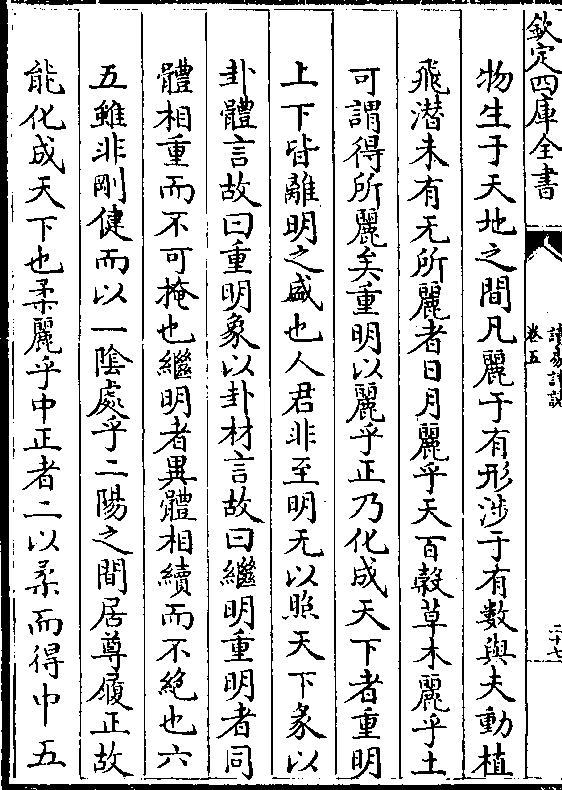 欽定四庫全書
讀易詳說
卷五
二十七
物生于天地之間凡麗于有形涉于有數與夫動植
飛潛未有无所麗者日月麗乎天百穀草木麗乎土
可謂得所麗矣重明以麗乎正乃化成天下者重明
上下皆離明之盛也人君非至明无以照天下彖以
卦體言故曰重明象以卦材言故曰繼明重明者同
體相重而不可掩也繼明者異體相續而不絶也六
五雖非剛健而以一陰處乎二陽之間居尊履正故
能化成天下也柔麗乎中正者二以柔而得中五